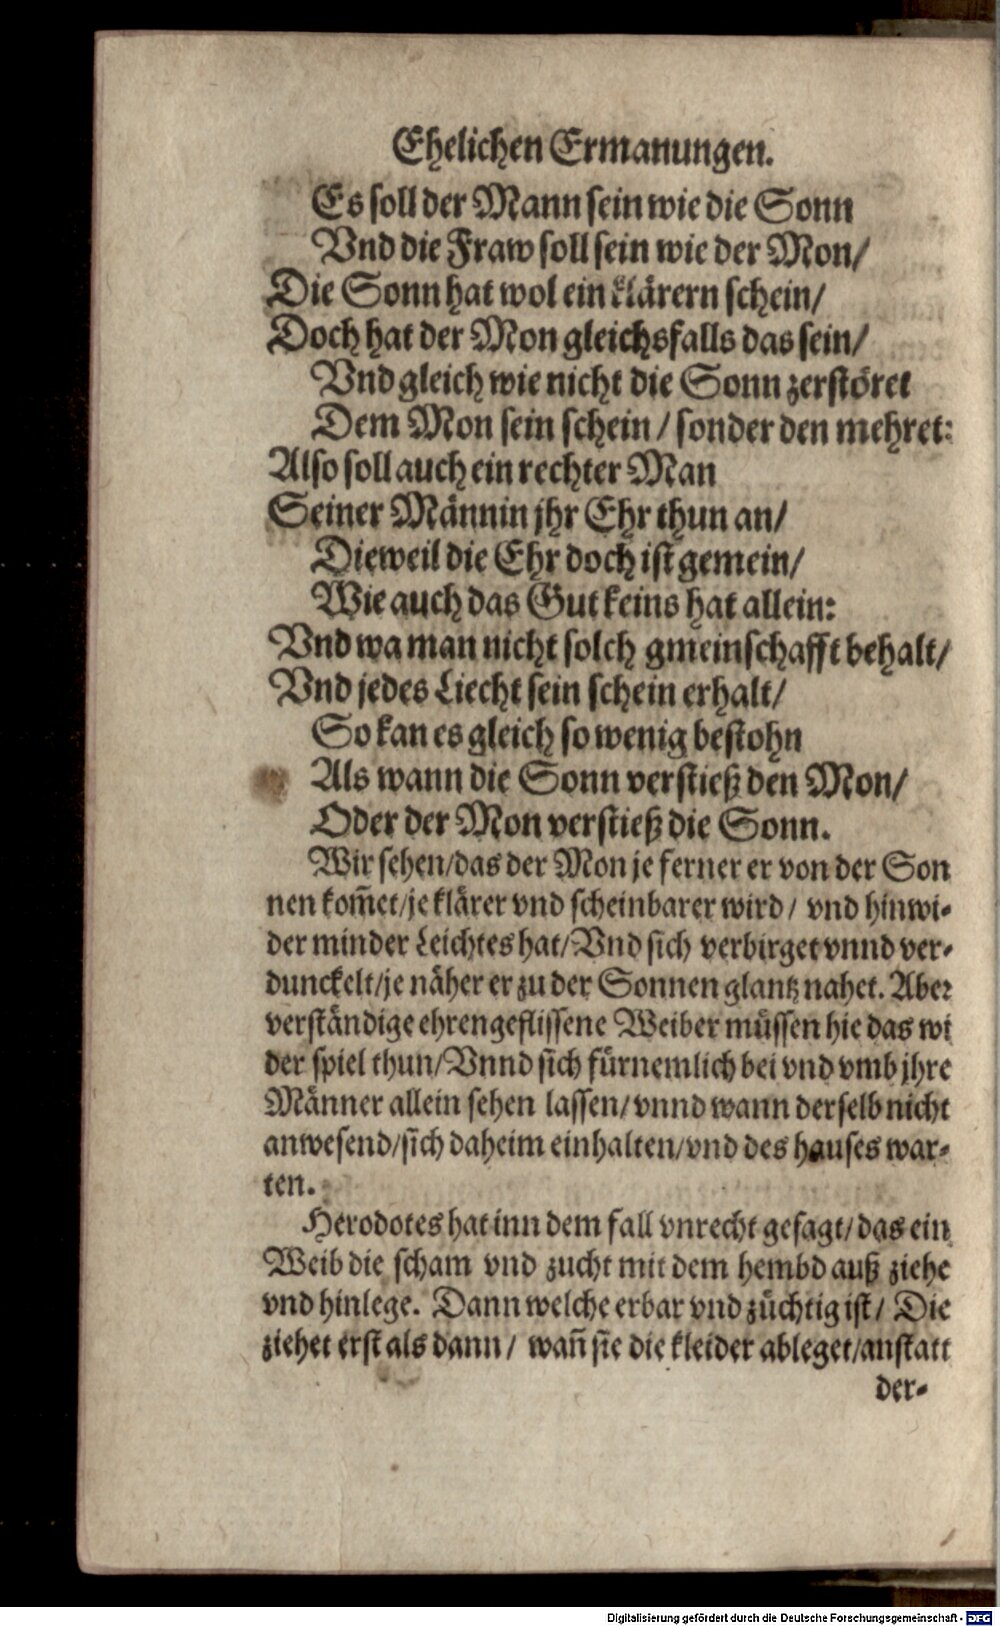 Ehelichen Ermanungen.
Es soll der Mann sein wie die Sonn
Vnd die Fraw soll sein wie der Mon/
Die Sonn hat wol ein klärern schein/
Doch hat der Mon gleichsfalls das sein/
Vnd gleich wie nicht die Sonn zerstöret
Dem Mon sein schein / sonder den mehret:
Also soll auch ein rechter Man
Seiner Männin jhr Ehr thun an/
Dieweil die Ehr doch ist gemein/
Wie auch das Gut keins hat allein:
Vnd wa man nicht solch gmeinschafft behalt/
Vnd jedes Liecht sein schein erhalt/
So kan es gleich so wenig bestohn
Als wann die Sonn verstieß den Mon/
Oder der Mon verstieß die Sonn.
Wir sehen/das der Mon je ferner er von der Son
nen kom̃et/je klärer vnd scheinbarer wird / vnd hinwi-
der minder Leichtes hat/Vnd sich verbirget vnnd ver-
dunckelt/je näher er zu der Sonnen glantz nahet. Aber
verständige ehrengeflissene Weiber müssen hie das wi
der spiel thun/Vnnd sich fürnemlich bei vnd vmb jhre
Männer allein sehen lassen/vnnd wann derselb nicht
anwesend/sich daheim einhalten/vnd des hauses war-
ten.
Herodotes hat inn dem fall vnrecht gesagt/das ein
Weib die scham vnd zucht mit dem hembd auß ziehe
vnd hinlege. Dann welche erbar vnd züchtig ist/ Die
ziehet erst als dann / wañ sie die kleider ableget/anstatt
der-
Digitalisierung gefördert durch die Deutsche Forschungsgemeinschaft - DFG